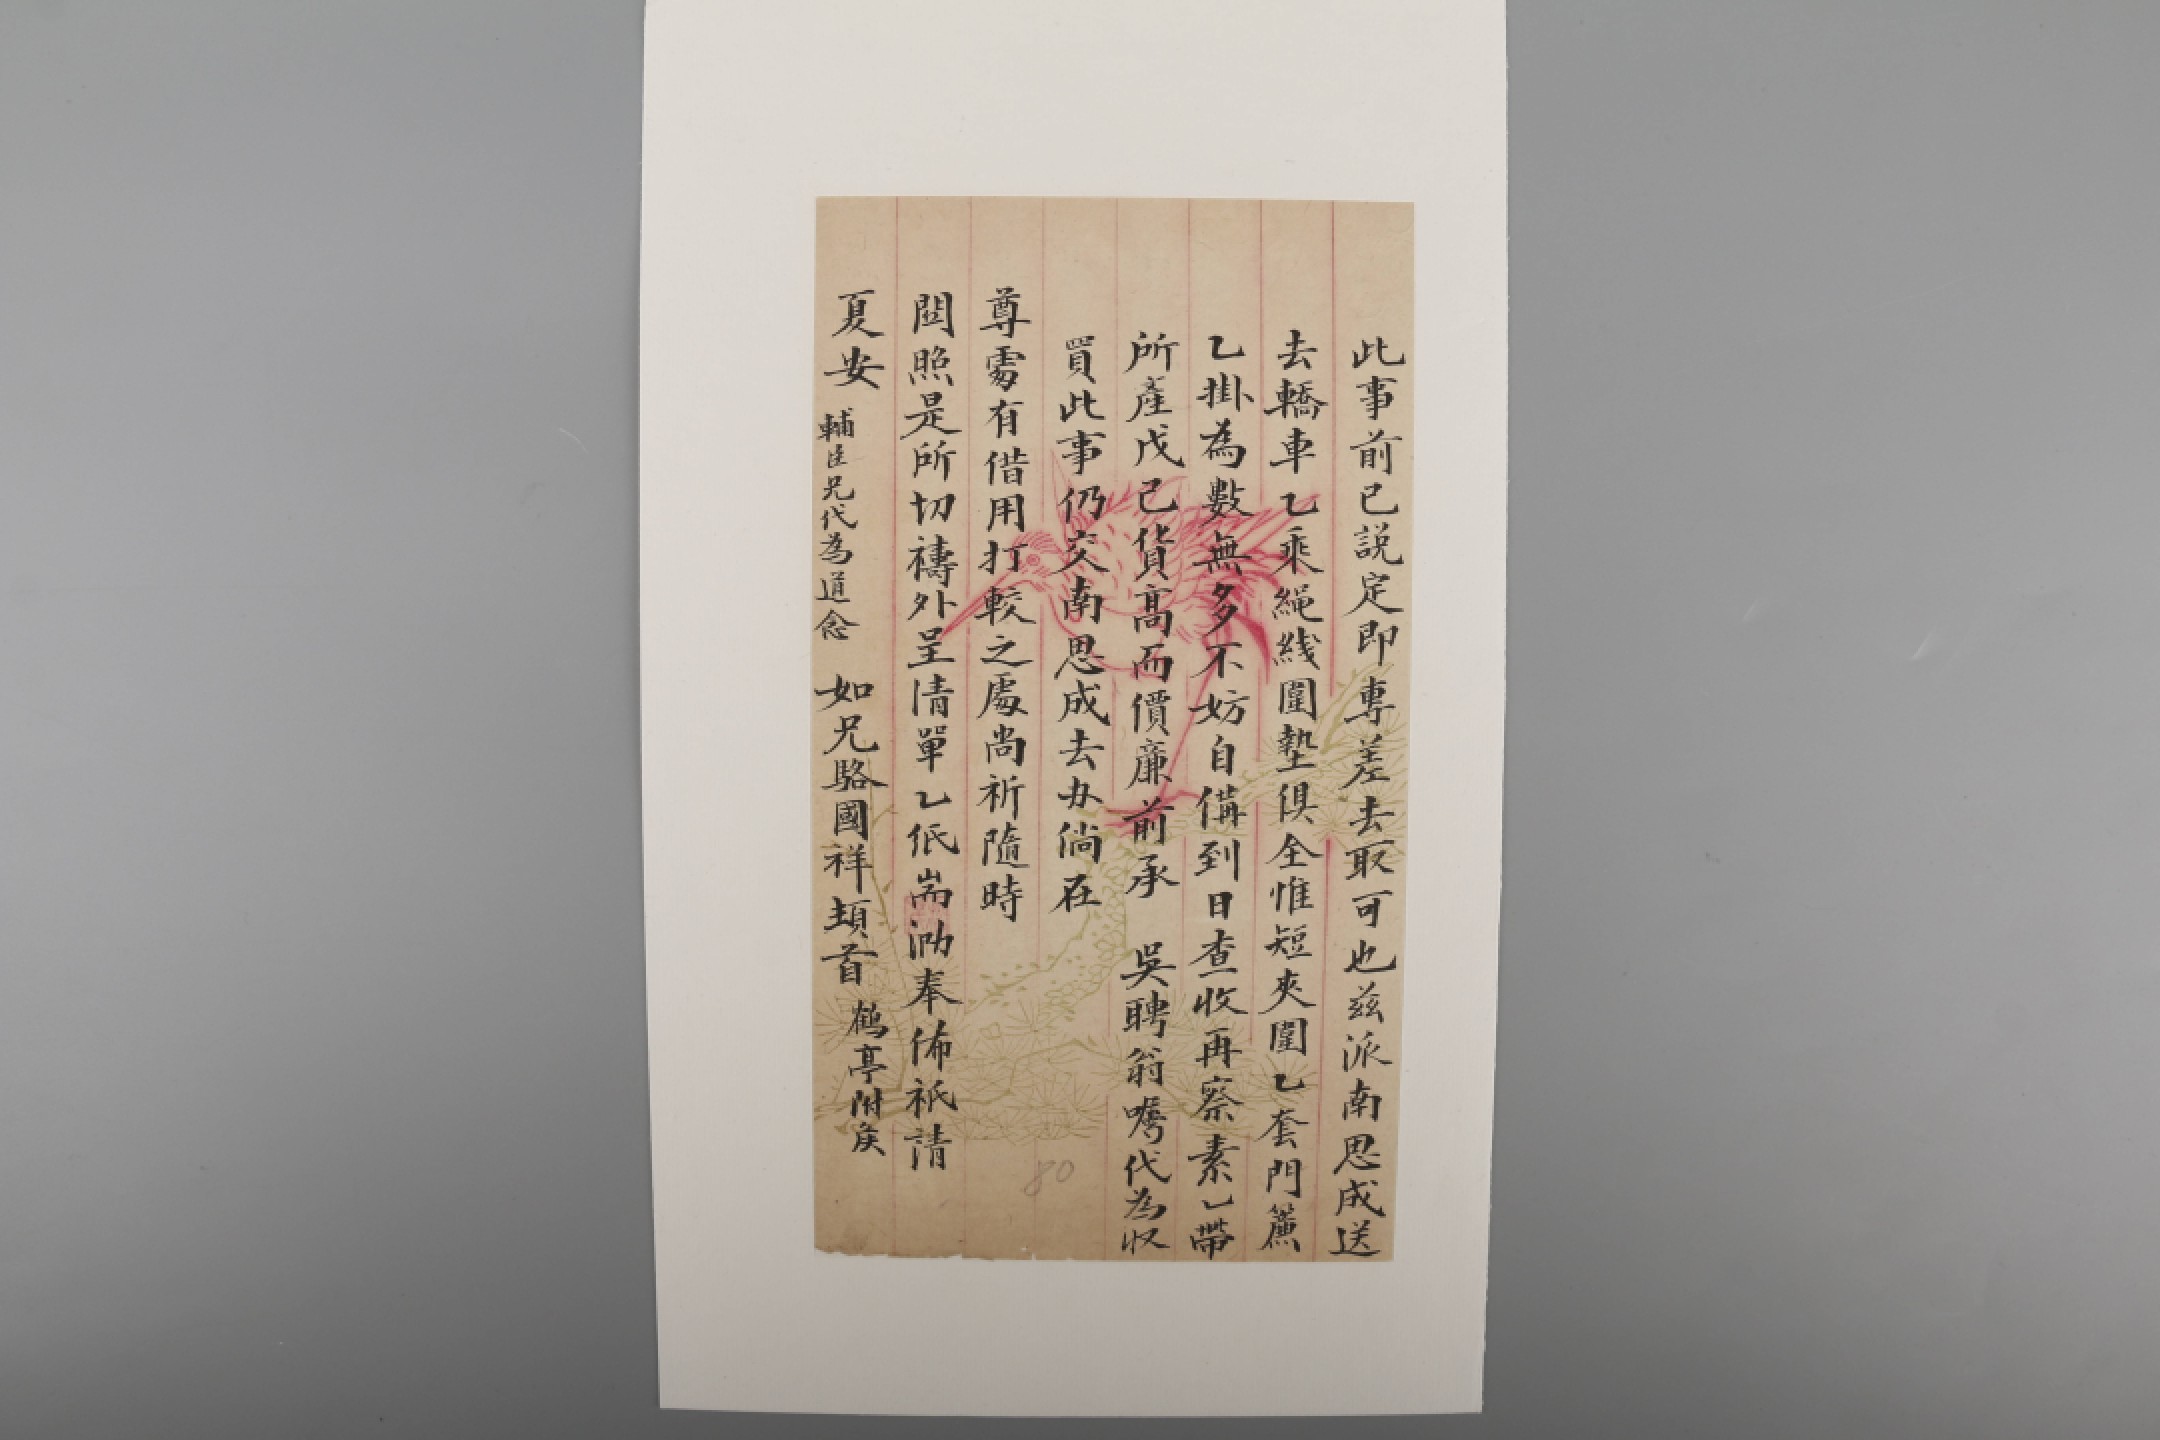 此事前已説定即專差去取可也茲派南思成送
去轎車乙乘繩綫圍墊俱全惟短夾圍乙套門簾
乙掛為數無多不妨自備到日查收再察素乙帶
所產戊己貨高而價廉前承 吳聘翁囑代為收
買此事仍交南思成去办倘在
尊處有借用打較之處尚祈隨時
関照是所切禱外呈清單乙纸耑泐奉佈祗請
夏安 輔臣兄代為道念 如兄駱國祥頓首 鶴亭附矦
80